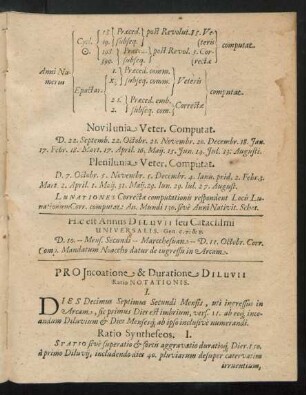 Cycl. ☉. 18 Præced. subseq. post Revolut. 15. Veteris computat.
Anni Numerus
Epactas.
Præced. comm.
subseq. Veteris
computat.
Præced. emb.
2. subseq. Correctæ
Novilunia Veter. Computat.
D. 22. Septemb. 22. Octobr. 21. Novembr. 20. Decembr. 18. Jan.
17. Febr. 18. Mart. 17. April. 16. Maij. 15. Jun. 14. Jul. 13. Augusti.
Plenilunia Veter. Computat.
D. 7. Octobr. 5. Novembr. 5. Decembr. 4. Janu. prid. 2. Febr. 3.
Mart. 2. April. 1. Maij. 31. Maij. 29. Jun. 29. Jul. 27. August.
LUNATIONES Correctæ computationis respondent Loci Lu-
nationum Corr. computat. An. Mundi 130. sivè Anni Nativit. Schet.
Hic est Annus DILUVII seu Cataclismi
UNIVERSALIS. Gen. c. 7. & 8.
D. 10. – Mens. Secundi – Marcchesuan. – D. 11. Octobr. Corr.
Com. Mandatum Noacho datur de ingressu in Arcam.
PRO Jncoatione & Duratione DILUVII
Ratio NOTATIONIS.
I.
DIES Decimus Septimus Secundi Mensis, uti ingressus in
Arcam, sic primus Dies est imbrium, vers. 11. ab eoq; inco-
andum Diluvium & Dies Menseq; ab ipso inclusivè numerandi.
Ratio Syntheseos, I.
STATIO sivè superatio & stetis aggravatio duratióq; Dier. 150.
à primo Diluvij, includendo dies 40. pluviarum desuper catervatim
irruentium,